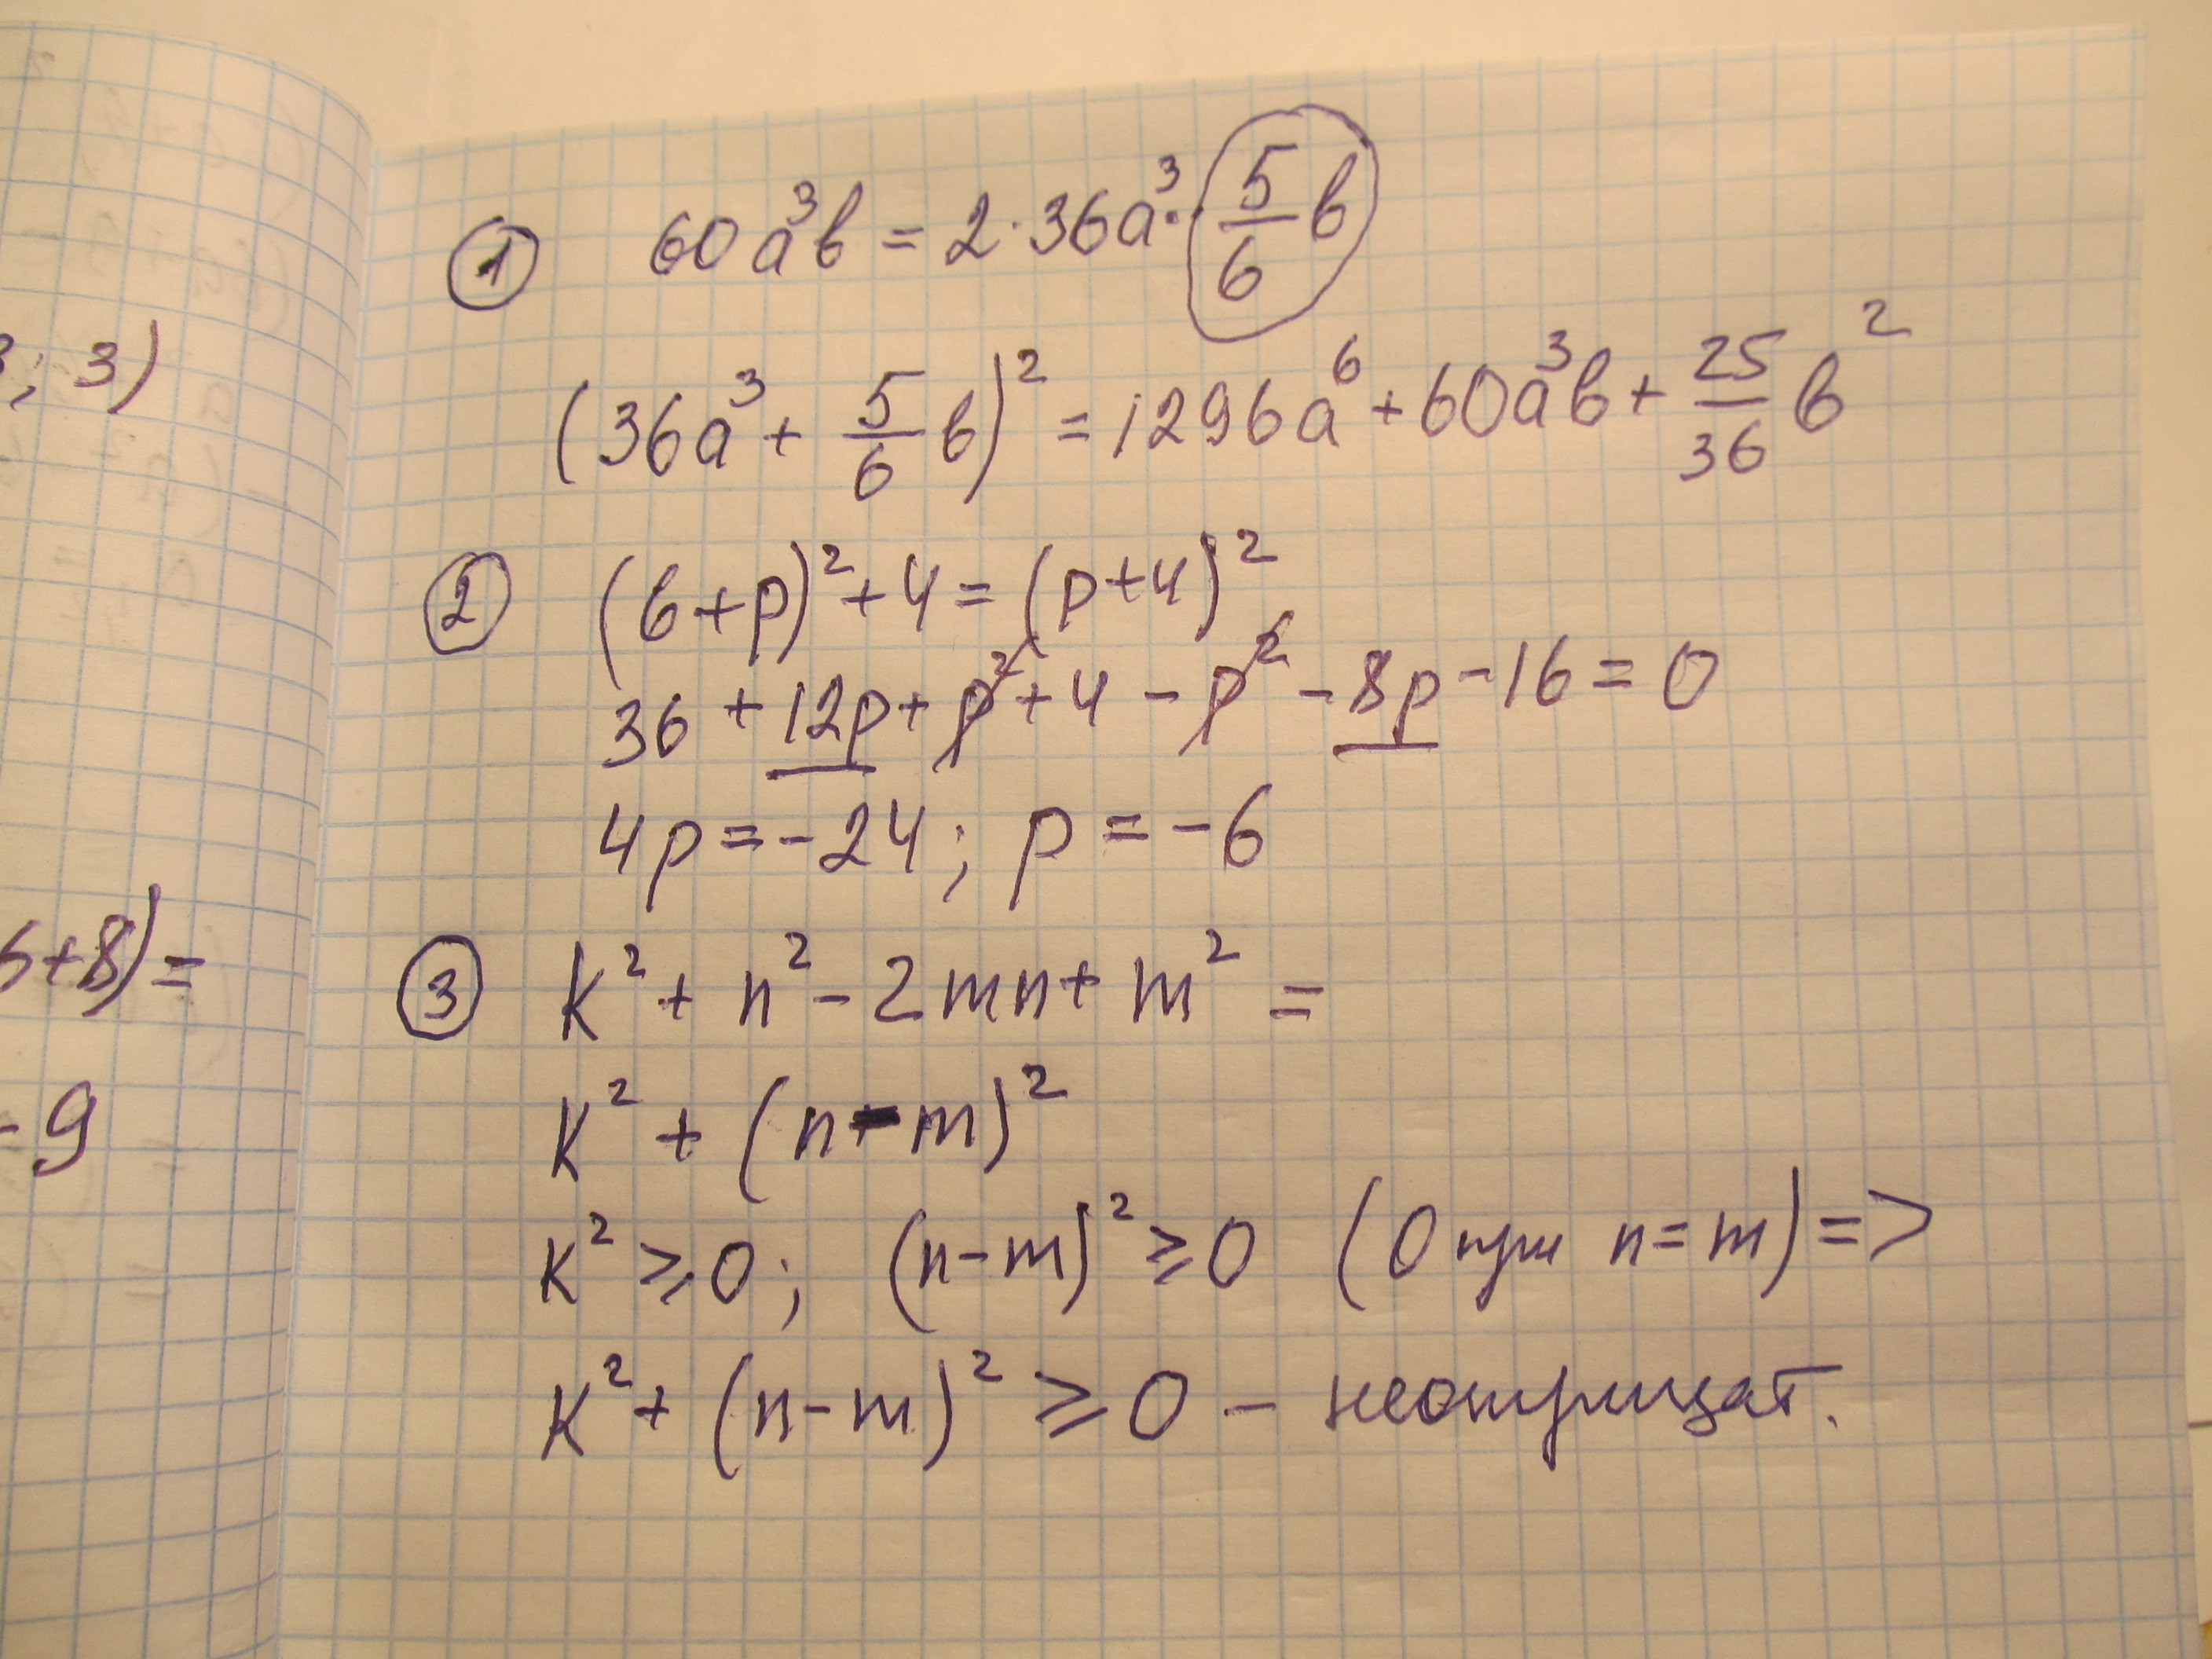 ; 3)
6+8)=
- 9
① 60a³b = 2·36a³·5/6 b
(36a³ + 5/6 b)² = 1296a⁶ + 60a³b + 25/36 b²
② (6+p)² + 4 = (p+4)²
36 + 12p + p² + 4 - p² - 8p - 16 = 0
4p = -24; p = -6
③ k² + n² - 2mn + m² =
k² + (n - m)²
k² ≥ 0; (n-m)² ≥ 0 (0 при n = m) =>
k² + (n-m)² ≥ 0 - неотрицат.